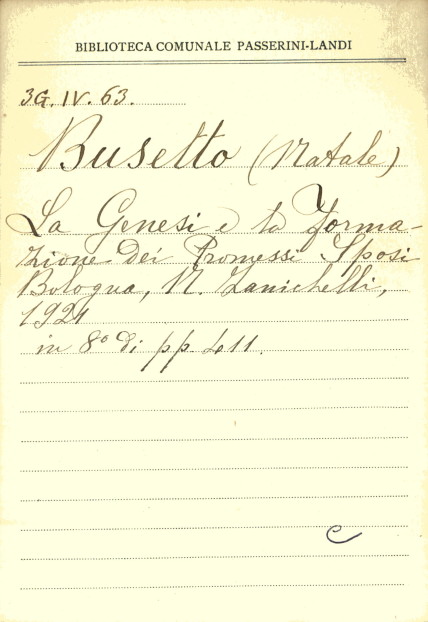 BIBLIOTECA COMUNALE PASSERINI-LANDI
3G. IV. 63.
Busetto (Natale)
La Genesi e la Forma-
zione dei Promessi Sposi
Bologna, N. Zanichelli,
1921
in 8° di pp. 411.
C